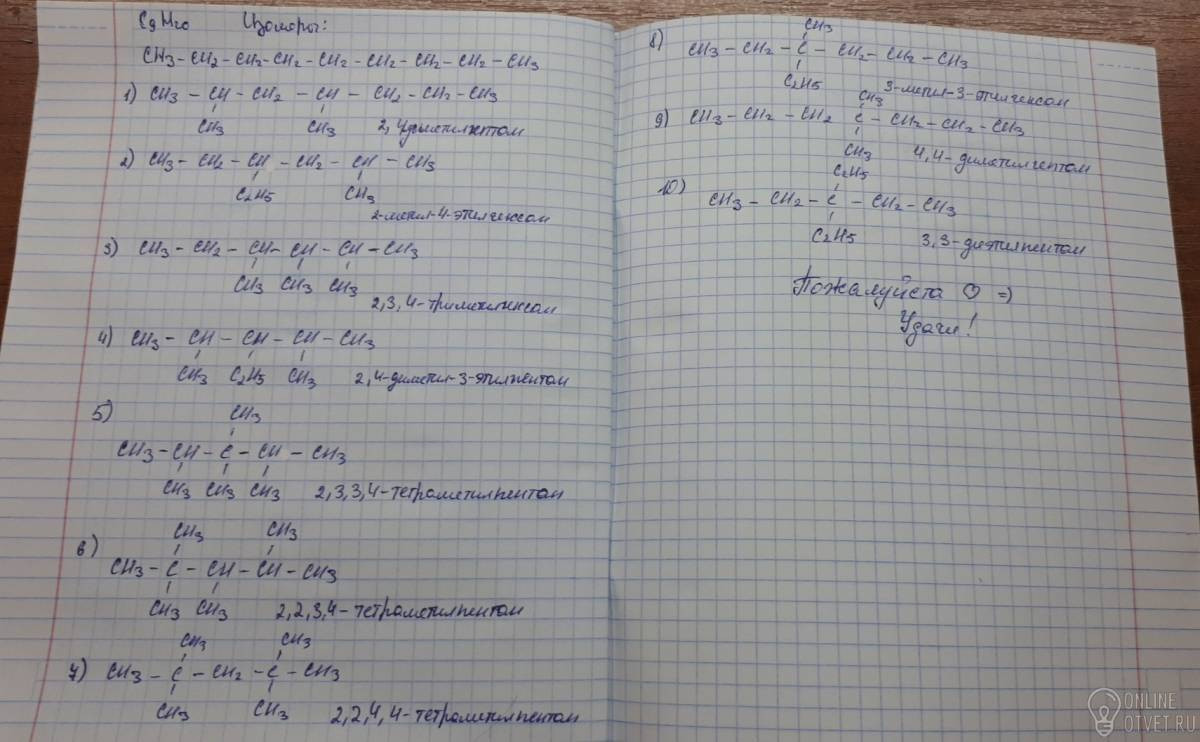 C9H20 Изомеры:
CH3 – CH2 – CH2 – CH2 – CH2 – CH2 – CH2 – CH2 – CH3
1) CH3 – CH – CH2 – CH – CH2 – CH2 – CH3
CH3 CH3 2,4
2) CH3 – CH2 – CH – CH2 – CH – CH3
C2H5 CH3
2-метил-4-этилгексан
3) CH3 – CH2 – CH – CH – CH – CH3
CH3 CH3 CH3
2,3,4-
4) CH3 – CH – CH – CH – CH3
CH3 C2H5 CH3 2,4-диметил-3-этилпентан
5) CH3
CH3 – CH – C – CH – CH3
CH3 CH3 CH3 2,3,3,4-тетраметилпентан
CH3 CH3
6) CH3 – C – CH – CH – CH3
CH3 CH3 2,2,3,4-тетраметилпентан
CH3 CH3
7) CH3 – C – CH2 – C – CH3
CH3 CH3 2,2,4,4-тетраметилпентан
CH3
8) CH3 – CH2 – C – CH2 – CH2 – CH3
C2H5 3-метил-3-этилгексан
CH3
9) CH3 – CH2 – CH2 C – CH2 – CH2 – CH3
CH3 4,4-диметилгептан
C2H5
10) CH3 – CH2 – C – CH2 – CH3
C2H5 3,3-диэтилпентан
Пожалуйста ♡ =)
Удачи!
ONLINE
OTVET.RU